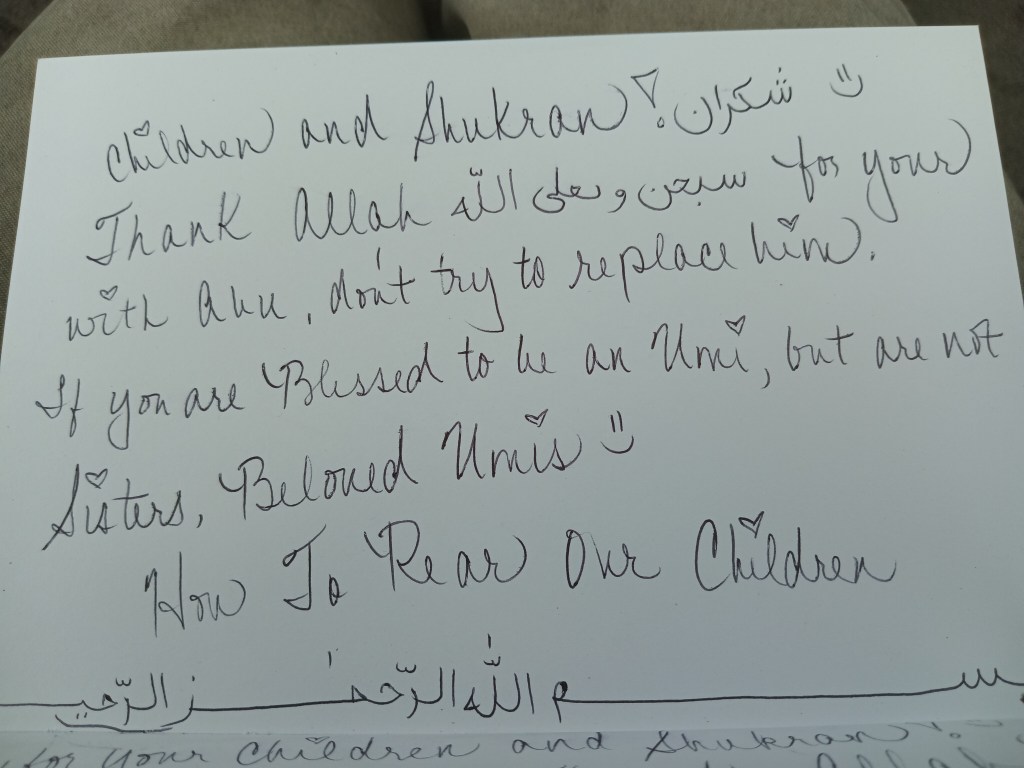 children and Shukran! شكران
Thank Allah سبحن و تعلى اللّه for your
with Abu, don't try to replace him.
If you are Blessed to be an Umi, but are not
Sisters, Beloved Umis
How To Rear Our Children
بسم اللّٰه الرّحمٰن الرّحيم
for your children and Shukran!